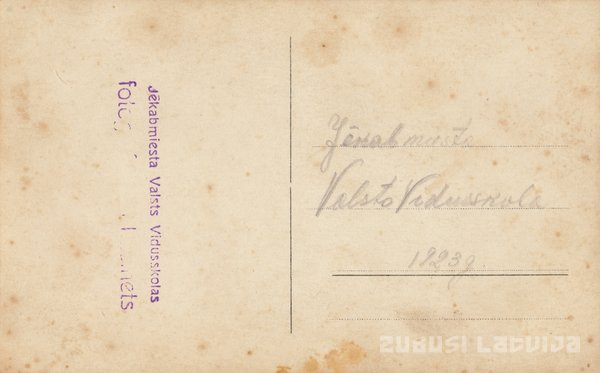 Jēkabmiesta Valsts Vidusskolas
Jēkabmiesta
Valsts Vidusskola
1923g.
ZUDUSĪ LATVIJA